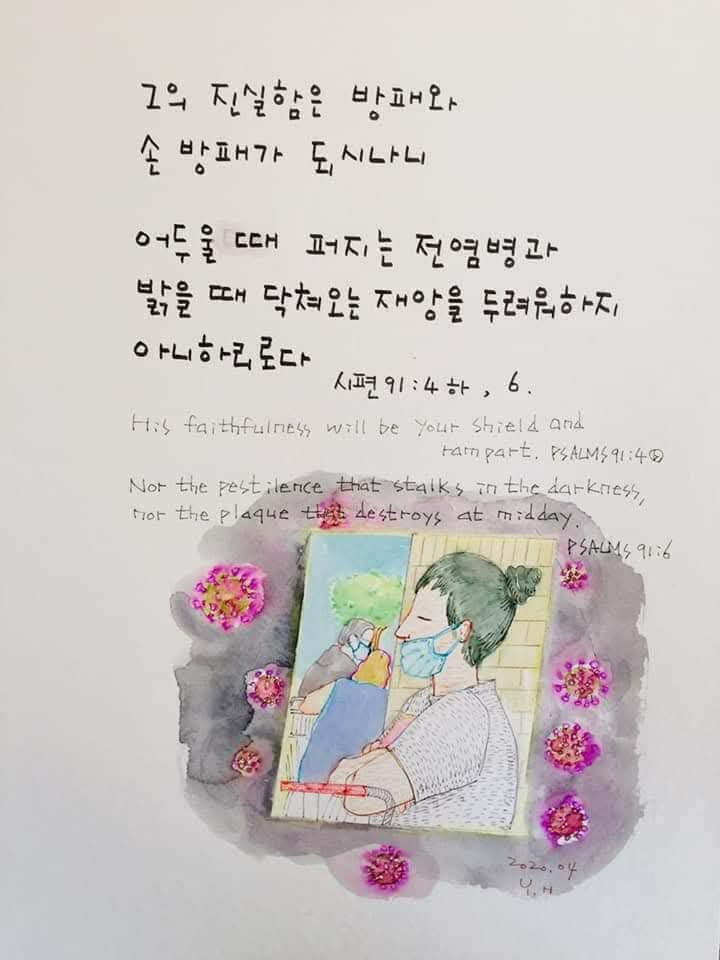 그의 진실함은 방패와
손 방패가 되시나니
어두울 때 퍼지는 전염병과
밝을 때 닥쳐오는 재앙을 두려워하지
아니하리로다
시편 91:4 하, 6.
His faithfulness will be your shield and
rampart. PSALMS 91:4 ⓑ
Nor the pestilence that stalks in the darkness,
nor the plaque that destroys at midday.
PSALMS 91:6
2020.04
Y.H